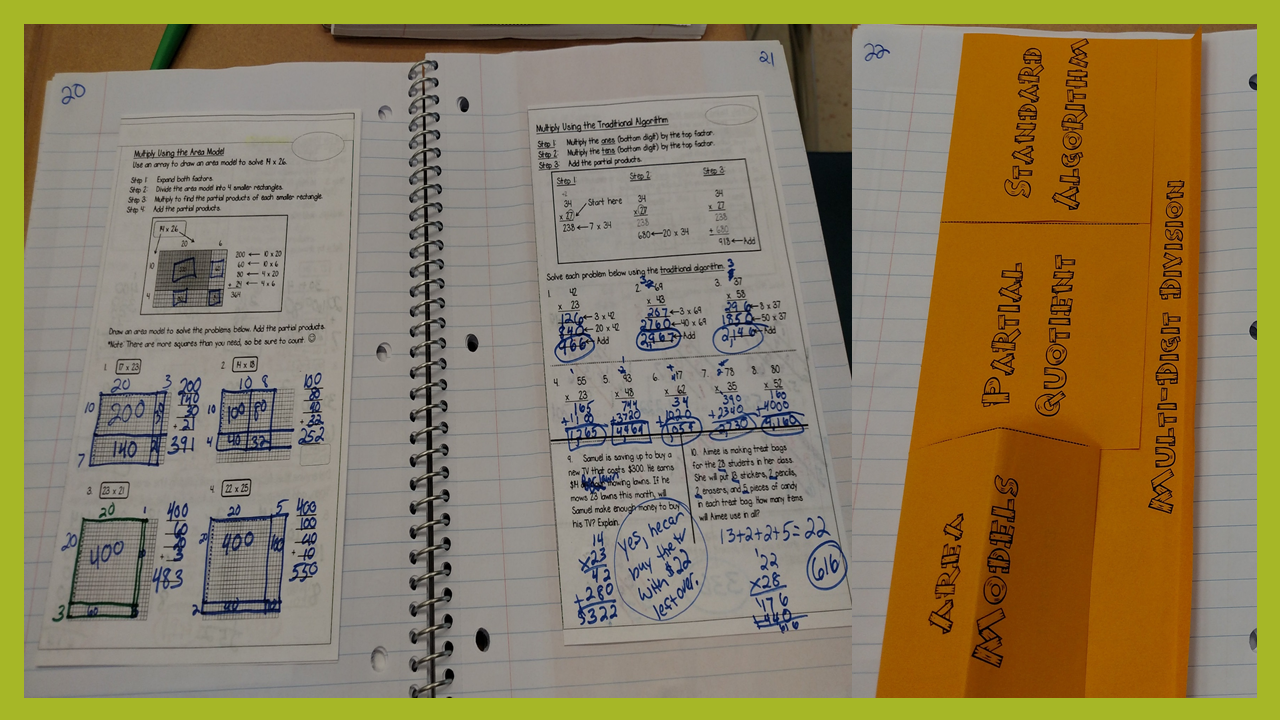 20
Multiply Using the Area Model
Use an array to draw an area model to solve 14 x 26.
Step 1: Expand both factors.
Step 2: Divide the area model into 4 smaller rectangles.
Step 3: Multiply to find the partial products of each smaller rectangle.
Step 4: Add the partial products.
14 x 26
20 6
10
4
200 ← 10 x 20
60 ← 10 x 6
80 ← 4 x 20
+ 24 ← 4 x 6
364
Draw an area model to solve the problems below. Add the partial products.
*Note: There are more squares than you need, so be sure to count. ☺
1. 17 x 23
20 3
10
7
200
140
200
140
30
+ 21
391
2. 14 x 18
10 8
10
4
100 80
40 32
100
80
40
+ 32
252
3. 23 x 21
20 1
20
3
400
400
60
483
4. 22 x 25
20 5
20
2
400 100
400
100
550
21
Multiply Using the Traditional Algorithm
Step 1: Multiply the ones (bottom digit) by the top factor.
Step 2: Multiply the tens (bottom digit) by the top factor.
Step 3: Add the partial products.
Step 1:
34
x 27
238 ← 7 x 34
Start here
Step 2:
34
x 27
238
680 ← 20 x 34
Step 3:
34
x 27
238
+ 680
918 ← Add
Solve each problem below using the traditional algorithm.
1. 42
x 23
126 ← 3 x 42
840 ← 20 x 42
966 ← Add
2. 69
x 43
207 ← 3 x 69
2760 ← 40 x 69
2,967 ← Add
3. 37
x 58
296 ← 8 x 37
1850 ← 50 x 37
2,146 ← Add
4. 55
x 23
165
1265
5. 93
x 48
744
+3720
4464
6. 17
x 62
34
1020
1054
7. 78
x 35
390
+2340
2730
8. 80
x 52
160
+4000
9. Samuel is saving up to buy a
new TV that costs $300. He earns
$14 mowing lawns. If he
mows 23 lawns this month, will
Samuel make enough money to buy
his TV? Explain.
14
x23
42
+280
$322
yes, he can
buy the tv
with $22
leftover.
10. Aimee is making treat bags
for the 28 students in her class.
She will put 13 stickers, 2 pencils,
2 erasers, and 5 pieces of candy
in each treat bag. How many items
will Aimee use in all?
13+2+2+5=22
22
x28
176
440
616
616
22
Standard
Algorithm
Partial
Quotient
Area
Models
Multi-Digit Division